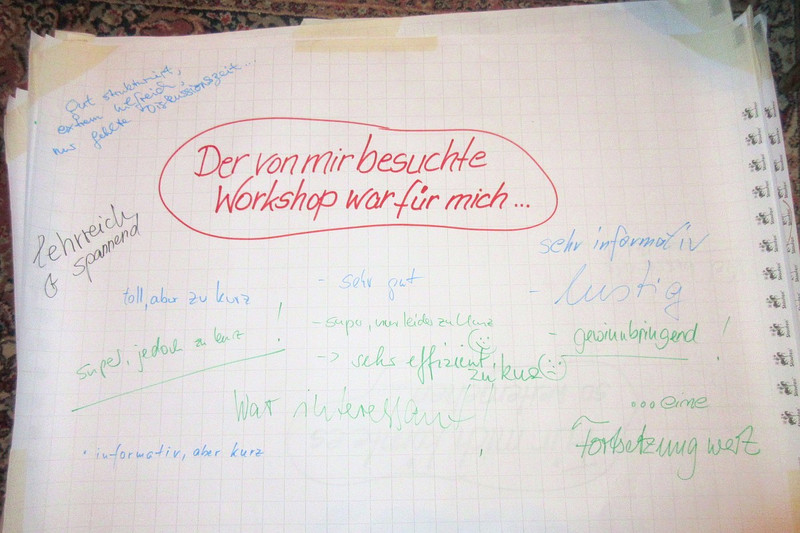 Gut strukturiert,
extrem hilfreich,
nur fehlte Diskussionszeit...
Der von mir besuchte
Workshop war für mich...
lehrreich
& spannend
sehr informativ
toll, aber zu kurz
- sehr gut
- lustig
super, jedoch zu kurz !
- super, nur leider zu kurz
- gewinnbringend !
-> sehr effizient,
zu kurz
War interessant!
...eine
Fortsetzung wert
· informativ, aber kurz